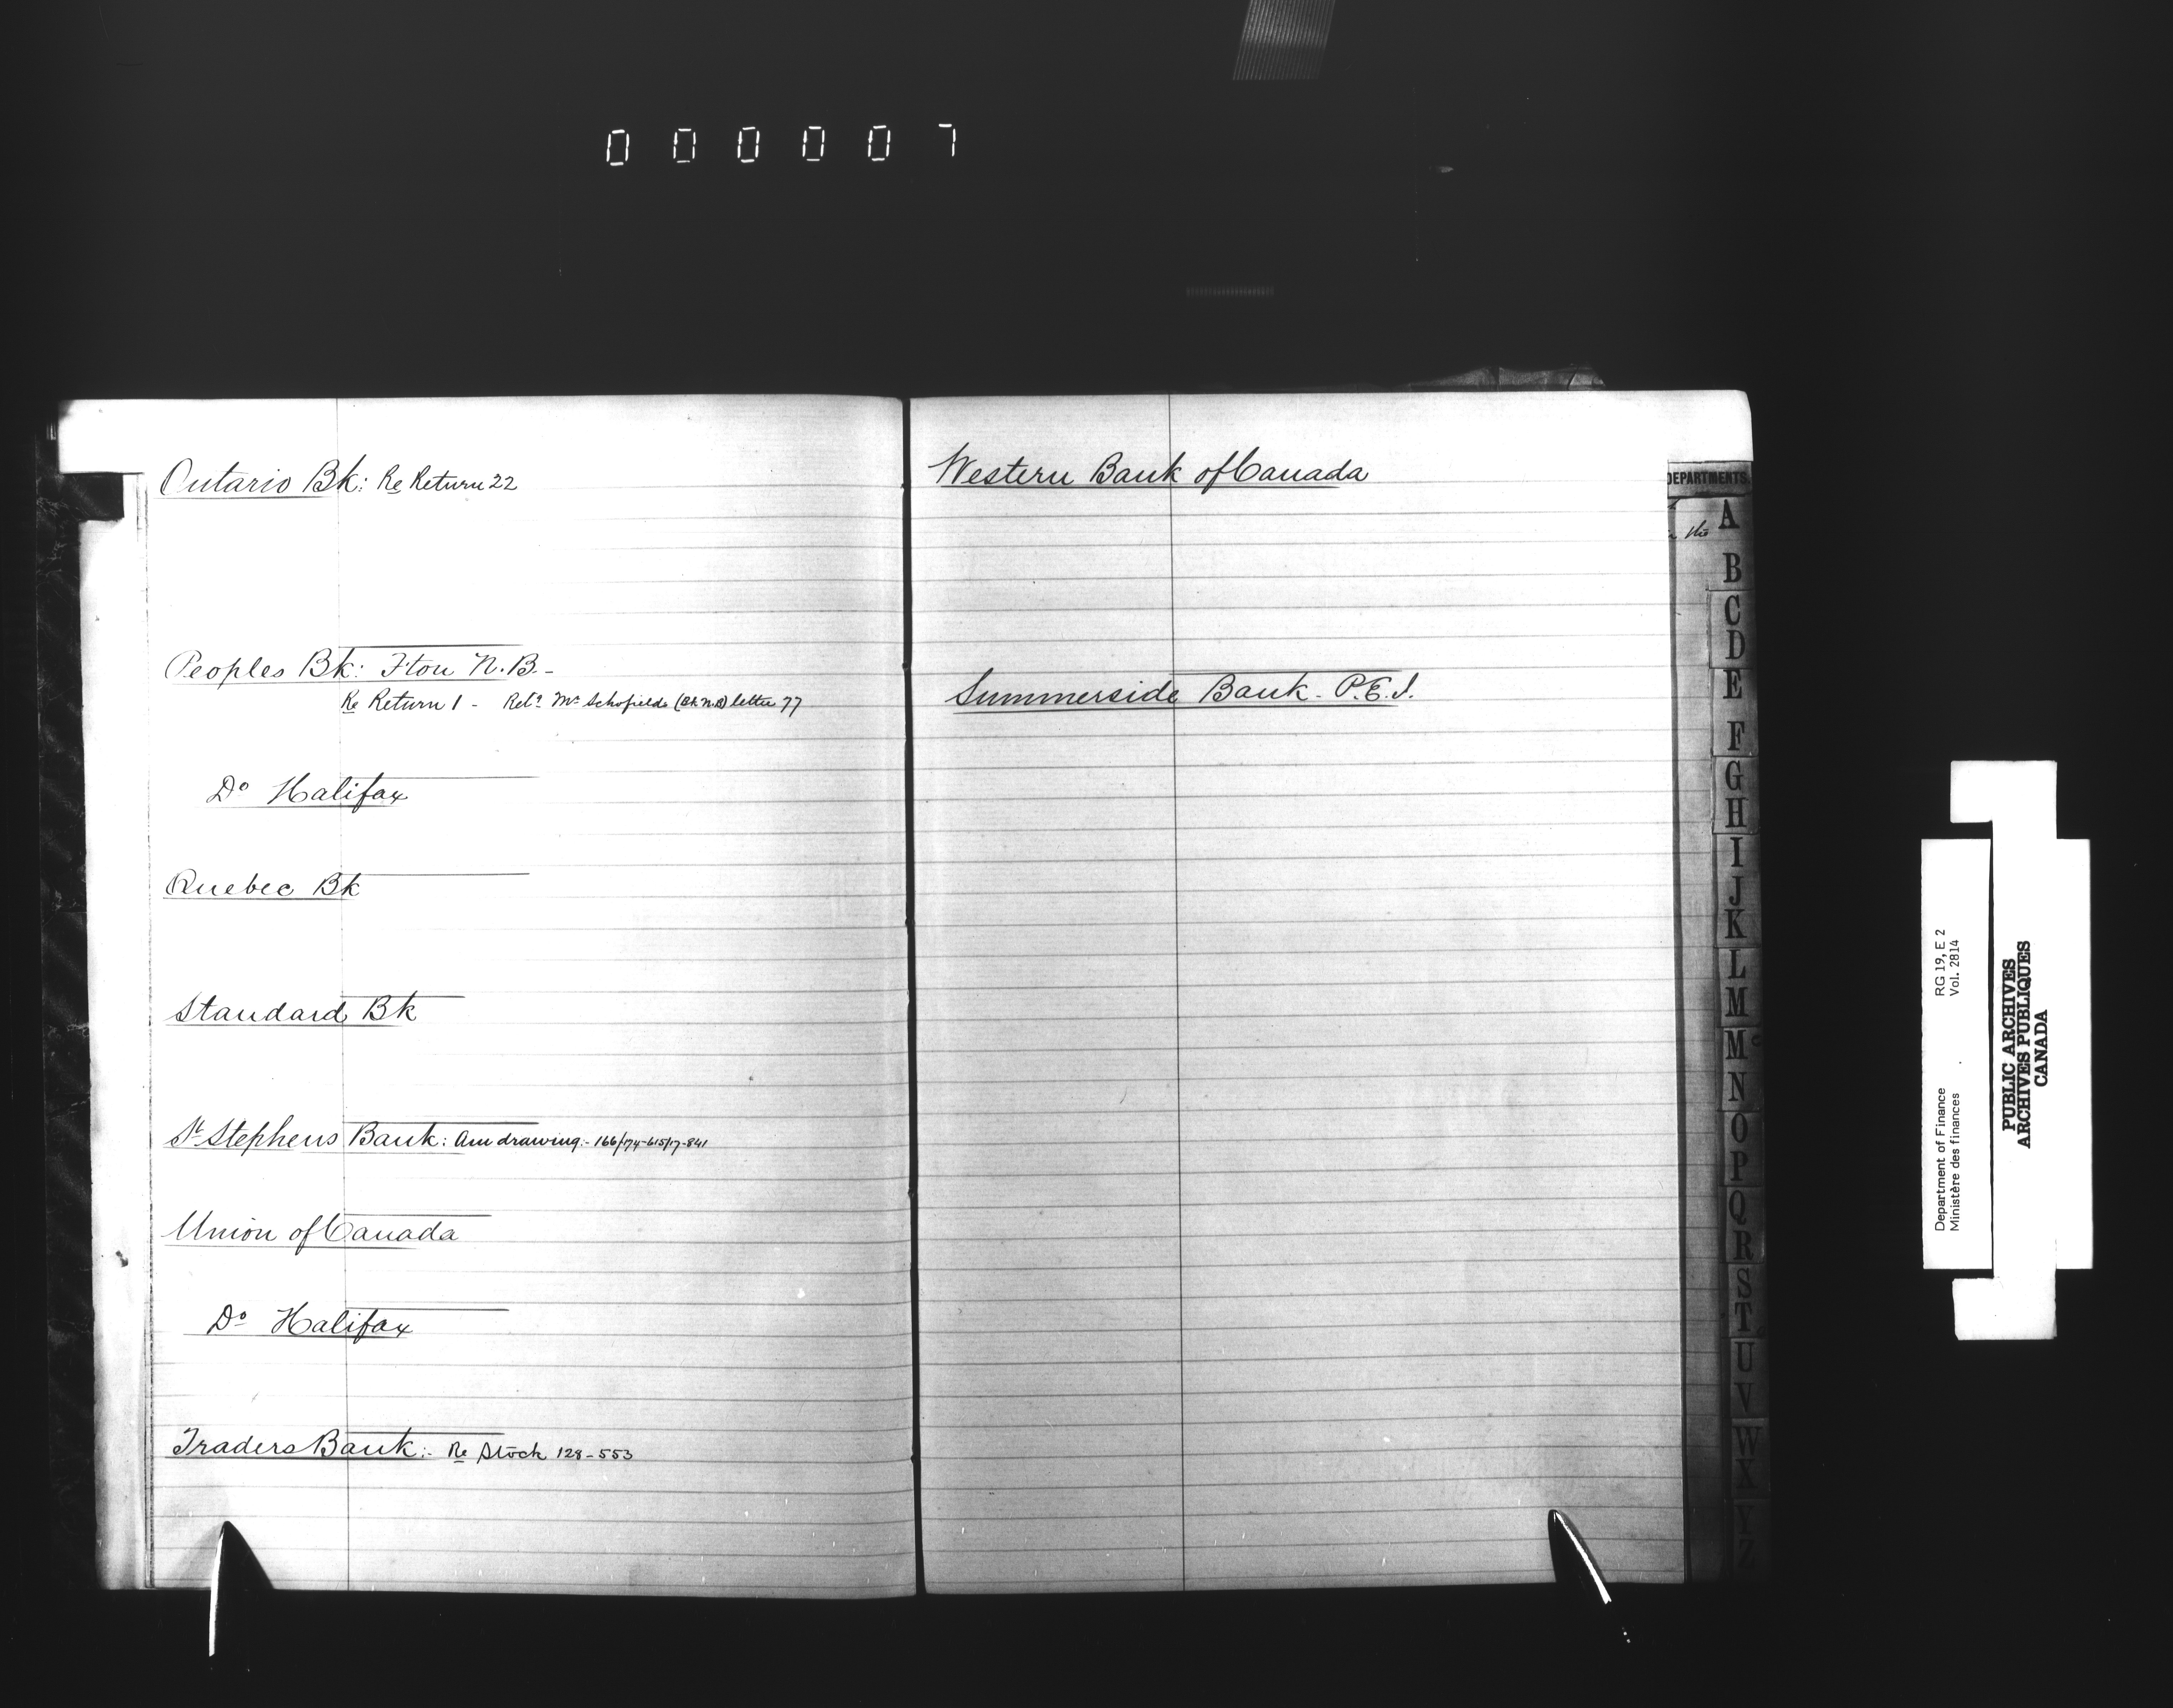 000007
Ontario Bk: Re Return 22
Peoples Bk: F'ton N.B. -
Re Return 1 - Retg Mr Schofields (Bk N.B) letter 77
Do Halifax
Quebec Bk
Standard Bk
St Stephens Bank: Am drawing:- 166/174-615/17-841
Union of Canada
Do Halifax
Traders Bank:- Re Stock 128-553
Western Bank of Canada
Summerside Bank - P.E.I.
DEPARTMENTS.
the
A
B
C
D
E
F
G
H
I
J
K
L
M
Mc
N
O
P
Q
R
S
T
U
V
W
X
Y
Z
Department of Finance RG 19, E 2
Ministère des finances Vol. 2814
PUBLIC ARCHIVES
ARCHIVES PUBLIQUES
CANADA